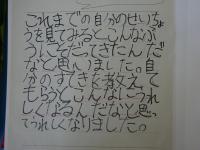 これまでの自分のせいちょ
うを見てみるとこんなふ
ういそだってきたんだ
なと思いました。自
分のすてきを教えて
もらうとこんなにうれ
しくなるんだなと思っ
てうれしくなりました。